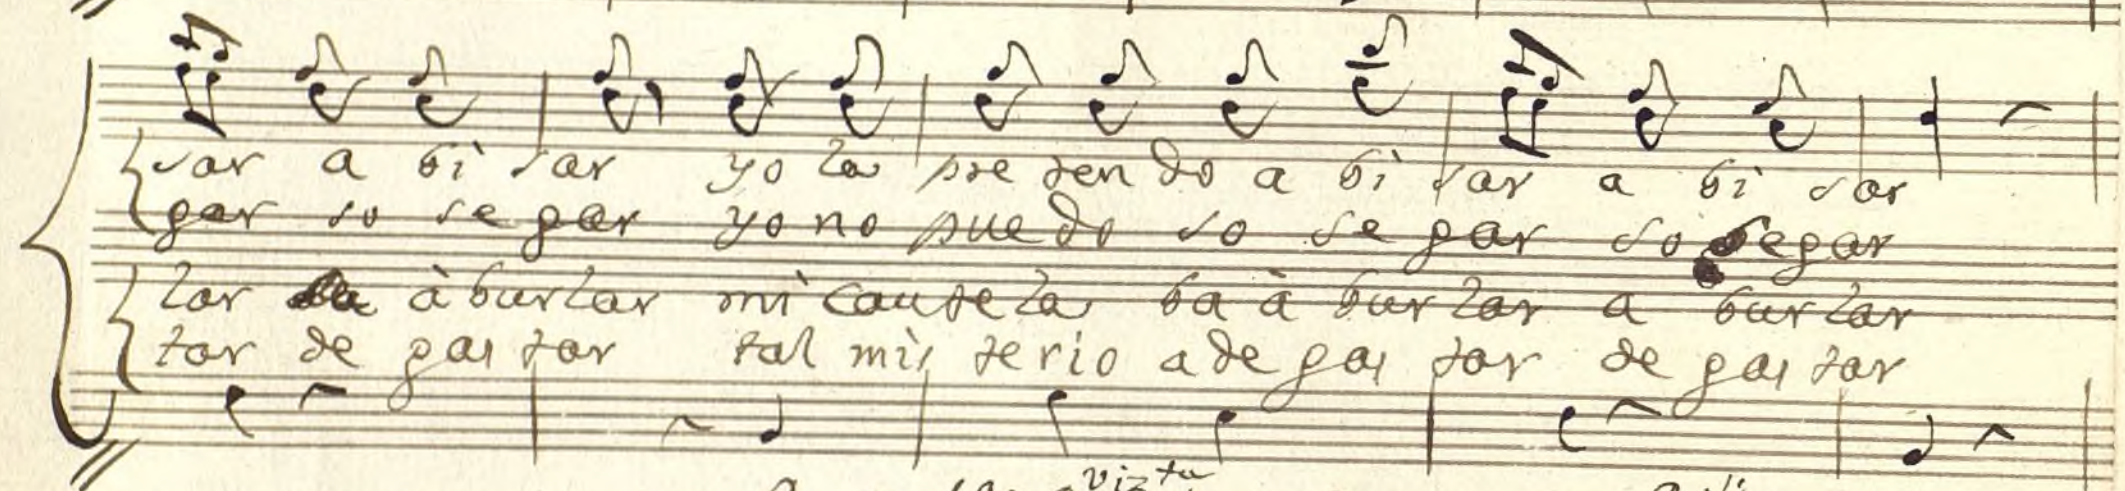 sar a bi sar yo la pre ten do a bi sar a bi sar
gar so se gar yo no pue do so se gar so segar
lar à burlar mi cautela ba à burlar a burlar
tar de gas tar tal mis terio a de gas tar de gas tar
vizta